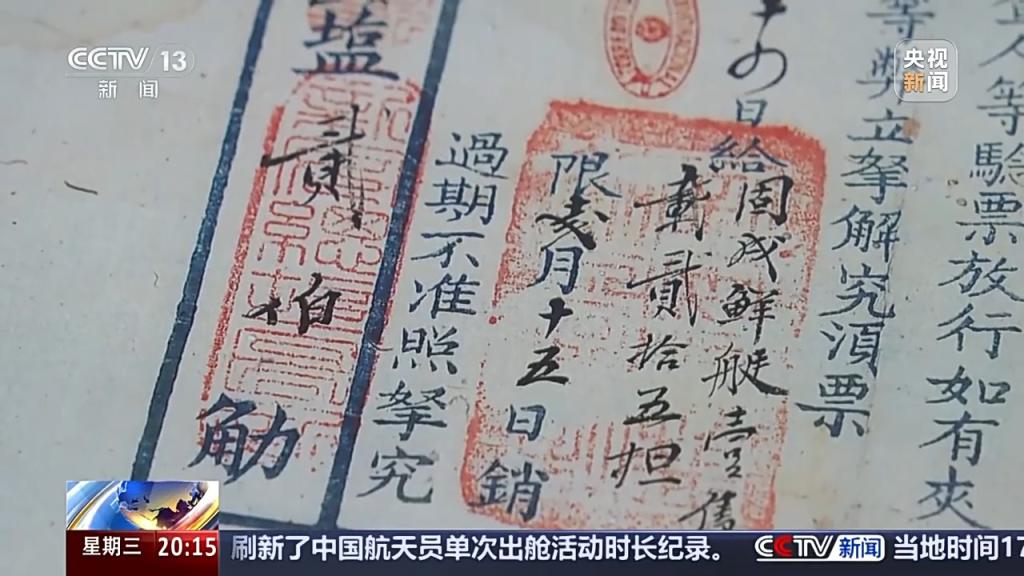 CCTV 13
新闻
央视
新闻
人等驗票放行如有夾
等弊立拏解究須票
日給
周成鮮艇壹
載貳拾五担
限 月十五日銷
過期不准照拏究
塩貳柏觔
星期三 20:15 刷新了中国航天员单次出舱活动时长纪录。 CCTV 新闻 当地时间17